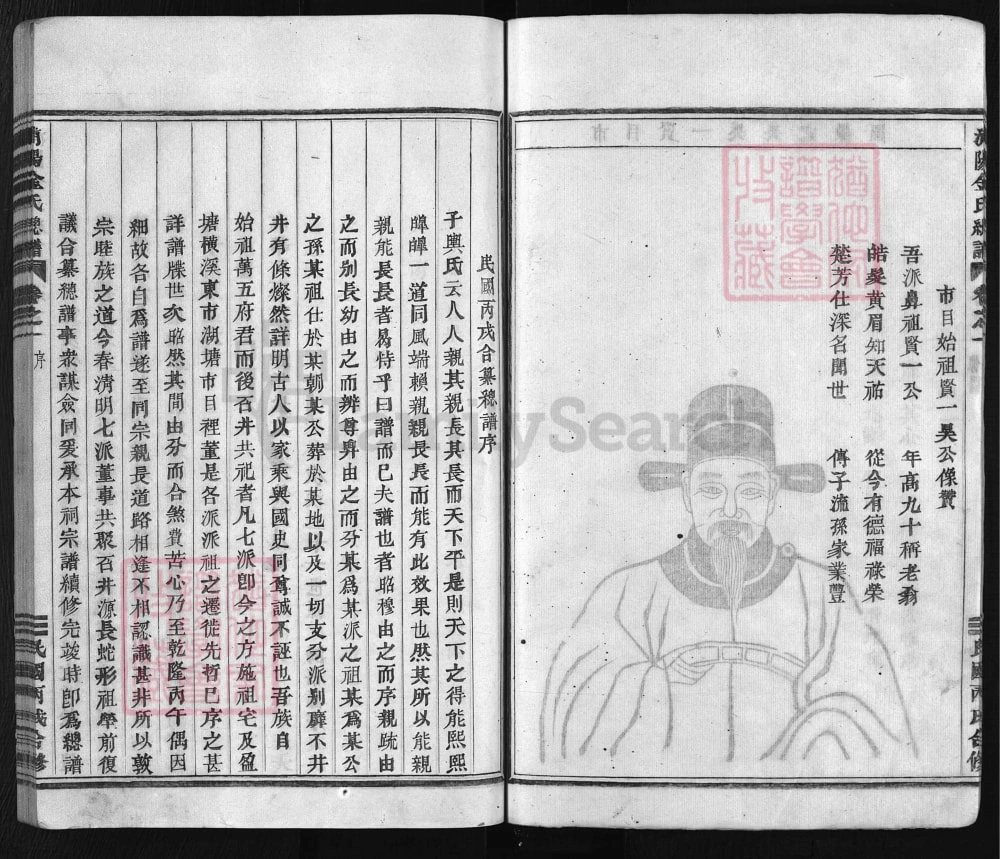 市目始祖賢一吳公像贊
吾派鼻祖賢一公　年高九十稱老翁
皓髮黃眉知天祐　從今有德福祿榮
楚芳仕深名聞世　傳子流孫家業豐
民國丙戌合纂總譜序
子輿氏云人人親其親長其長而天下平是則天下之得能熙熙
皡皡一道同風端賴親親長長而能有此效果也然其所以能親
親能長長者曷恃乎曰譜而已夫譜也者昭穆由之而序親疏由
之而别長幼由之而辨尊卑由之而分某爲某派之祖某爲某公
之孫某祖仕於某朝某公葬於某地以及一切支分派别靡不井
井有條燦然詳明古人以家乘與國史同尊誠不誣也吾族自
始祖萬五府君而後石井共祀者凡七派卽今之方施祖宅及盈
塘橫溪東市湖塘市目裡董是各派派祖之遷徙先哲巳序之甚
詳譜牒世次昭然其間由分而合煞費苦心乃至乾隆丙午偶因
細故各自爲譜遂至同宗親長道路相逢不相認識甚非所以敦
宗睦族之道今春清明七派董事共聚石井源長蛇形祖塋前復
議合纂總譜事衆謀僉同爰承本祠宗譜續修完竣時卽爲總譜
金氏總譜
卷之一
序
民國丙戌合修
金氏總譜
民國丙戌合修
譜學會
收藏
FamilySearch